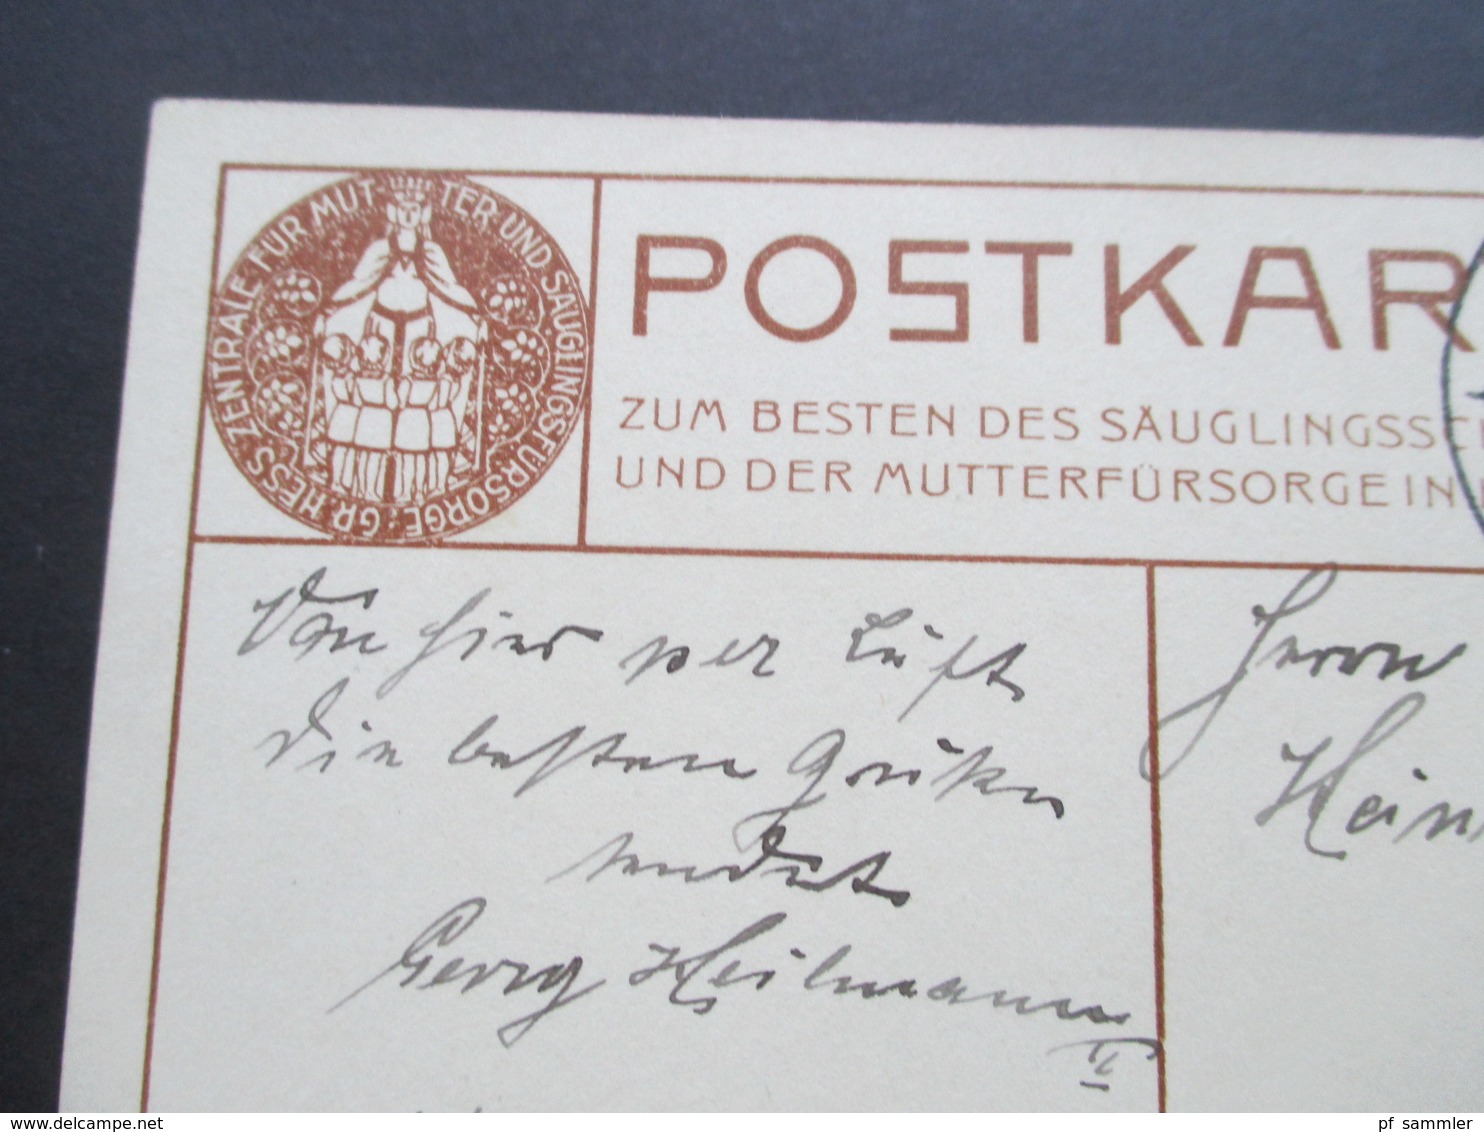 ZENTRALE FÜR MUTTER UND SÄUGLINGSFÜRSORGE: GR. HESS.
POSTKAR
ZUM BESTEN DES SÄUGLINGSSC
UND DER MUTTERFÜRSORGE IN
Von hier per Luft
die besten Grüße
sendet
Georg Heilmann
II
Herrn
Hein
delcampe.net
pf_sammler